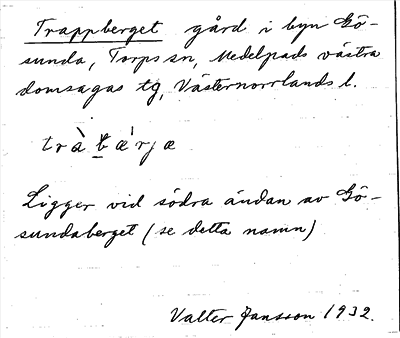 Trappberget gård i byn Gö-
sunda, Torps sn, Medelpads västra
domsagas tg, Västernorrlands l.
Ligger vid södra ändan av Gö-
sundaberget (se detta namn)
Valter Jansson 1932.